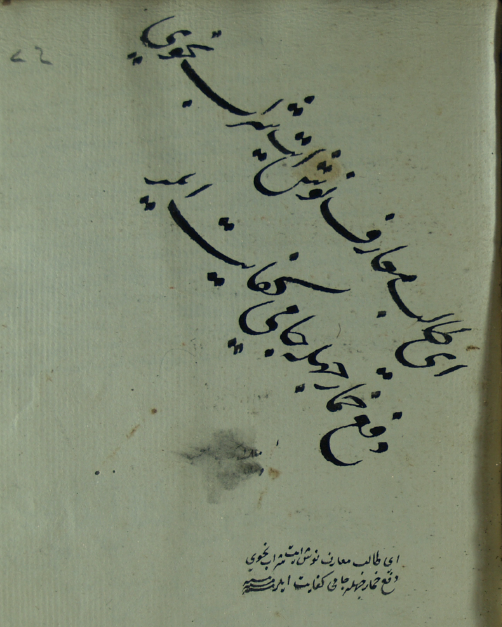 ای طالب معارف نوش ایت شراب نحوی
دفع خمار جهله جامی کفایت ایلر
ای طالب معارف نوش ایت شراب نحوی
دفع خمار جهله جامی کفایت ایدر